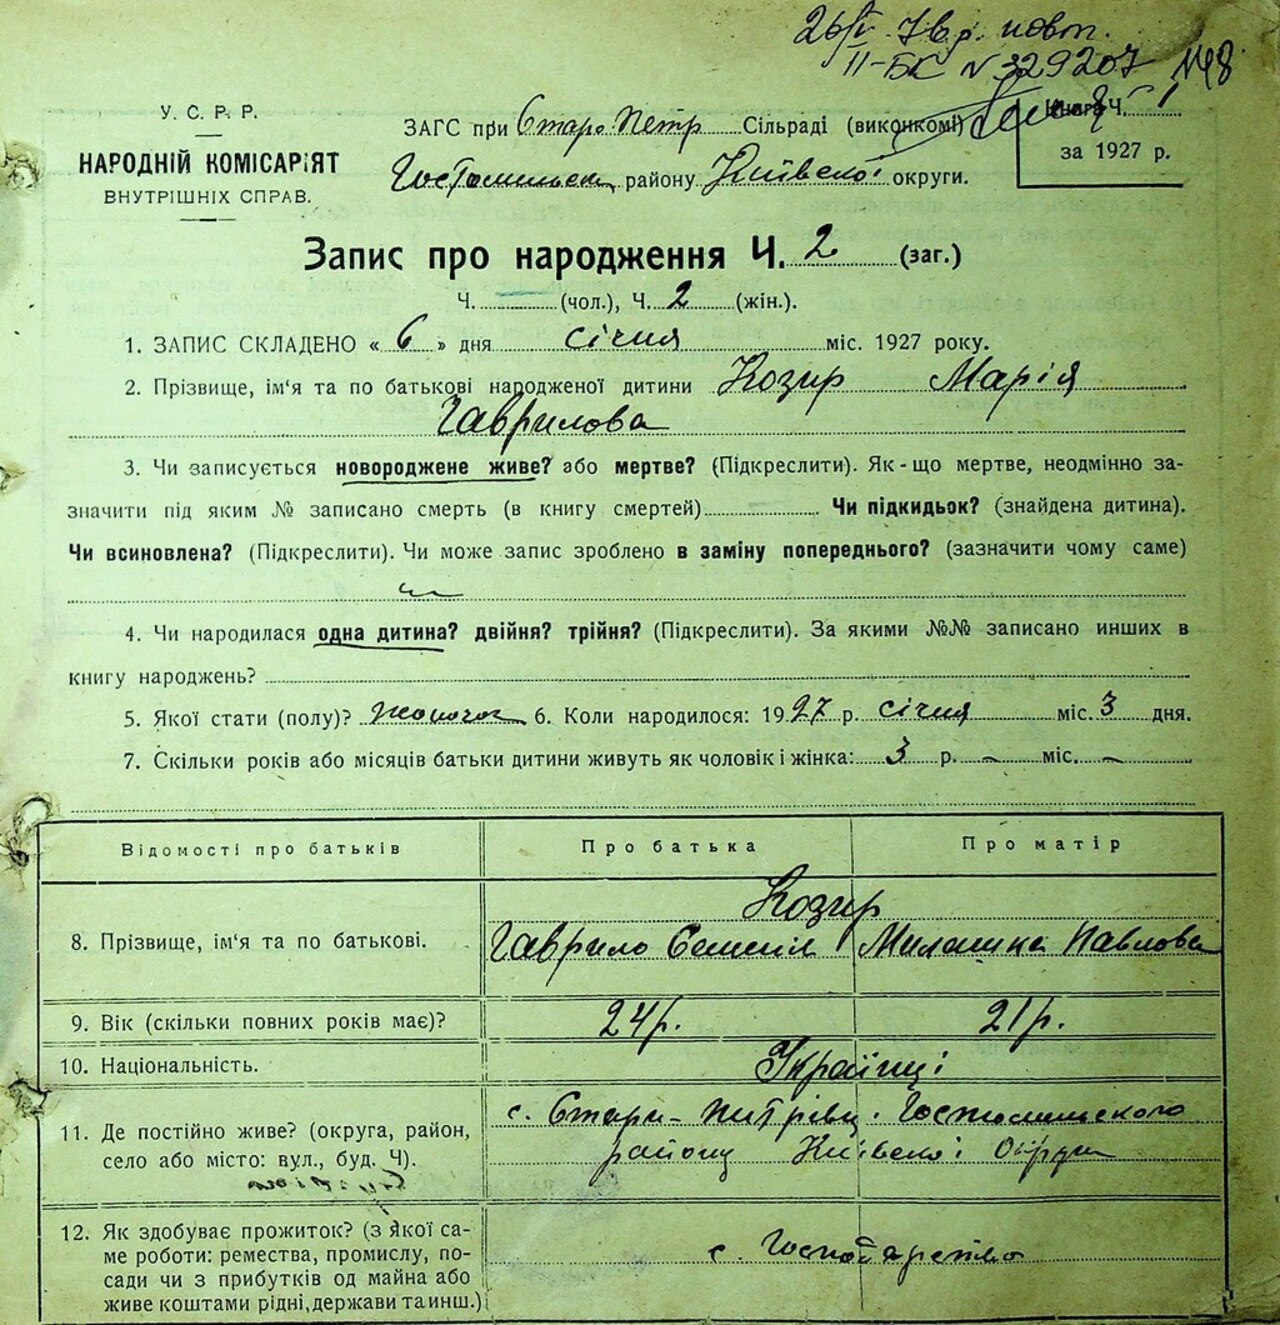 26/V 78 р. повт.
II-БК N 329207 №48
У. С. Р. Р.
НАРОДНІЙ КОМІСАРІЯТ
ВНУТРІШНІХ СПРАВ.
ЗАГС при Старо-Петр Сільраді (виконкомі)
Гостомильськ району Київської округи.
Книга Ч. 1
за 1927 р.
Запис про народження Ч. 2 (заг.)
Ч. (чол.), Ч. 2 (жін.).
1. ЗАПИС СКЛАДЕНО « 6 » дня січня міс. 1927 року.
2. Прізвище, ім‘я та по батькові народженої дитини Козир Марія
Гаврилова
3. Чи записується новороджене живе? або мертве? (Підкреслити). Як-що мертве, неодмінно за-
значити під яким № записано смерть (в книгу смертей) Чи підкидьок? (знайдена дитина).
Чи всиновлена? (Підкреслити). Чи може запис зроблено в заміну попереднього? (зазначити чому саме)
4. Чи народилася одна дитина? двійня? трійня? (Підкреслити). За якими №№ записано инших в
книгу народжень?
5. Якої стати (полу)? жіночої 6. Коли народилося: 1927 р. січня міс. 3 дня.
7. Скільки років або місяців батьки дитини живуть як чоловік і жінка: 3 р. — міс. —
Відомості про батьків Про батька Про матір
Козир
8. Прізвище, ім‘я та по батькові. Гаврило Семенів Милашка Павлова
9. Вік (скільки повних років має)? 24 р. 21 р.
10. Національність. Українці
11. Де постійно живе? (округа, район,
село або місто: вул., буд. Ч).
с. Стари-Питрівці Гостомильського
району Київської Округи
12. Як здобуває прожиток? (з якої са-
ме роботи: ремества, промислу, по-
сади чи з прибутків од майна або
живе коштами рідні, держави та инш.)
с. Господарство